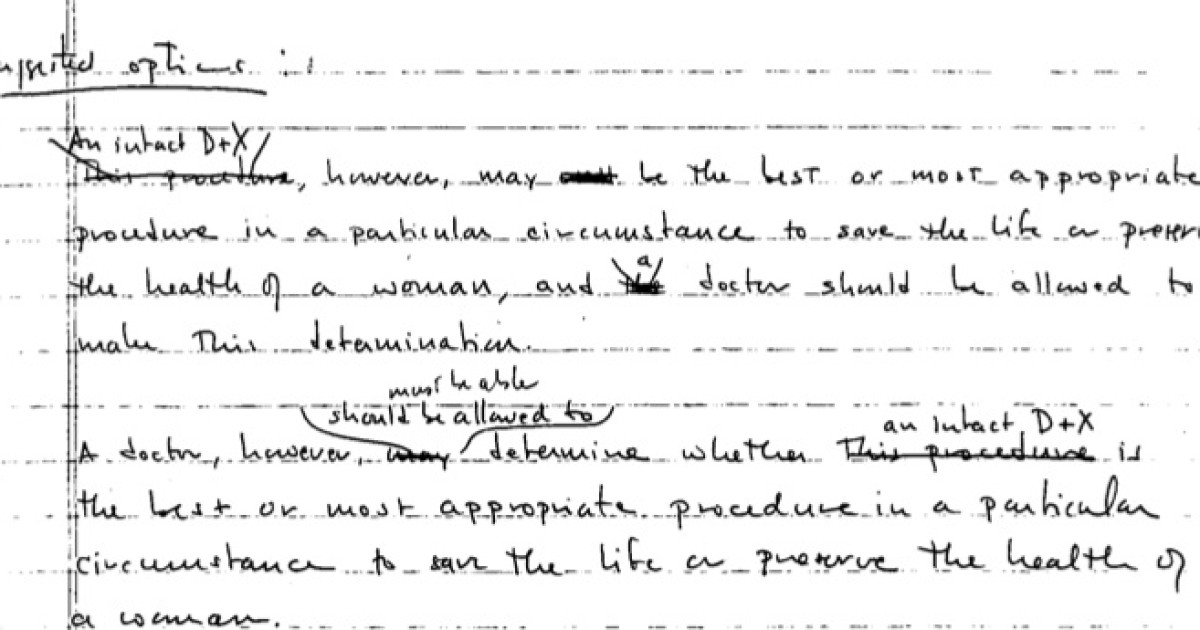 uggested options :
An intact D+X
This procedure, however, may be the best or most appropriate
procedure in a particular circumstance to save the life or preser
the health of a woman, and a doctor should be allowed to
make this determination.
must be able
should be allowed to
an intact D+X
A doctor, however, may determine whether this procedure is
the best or most appropriate procedure in a particular
circumstance to save the life or preserve the health of
a woman.